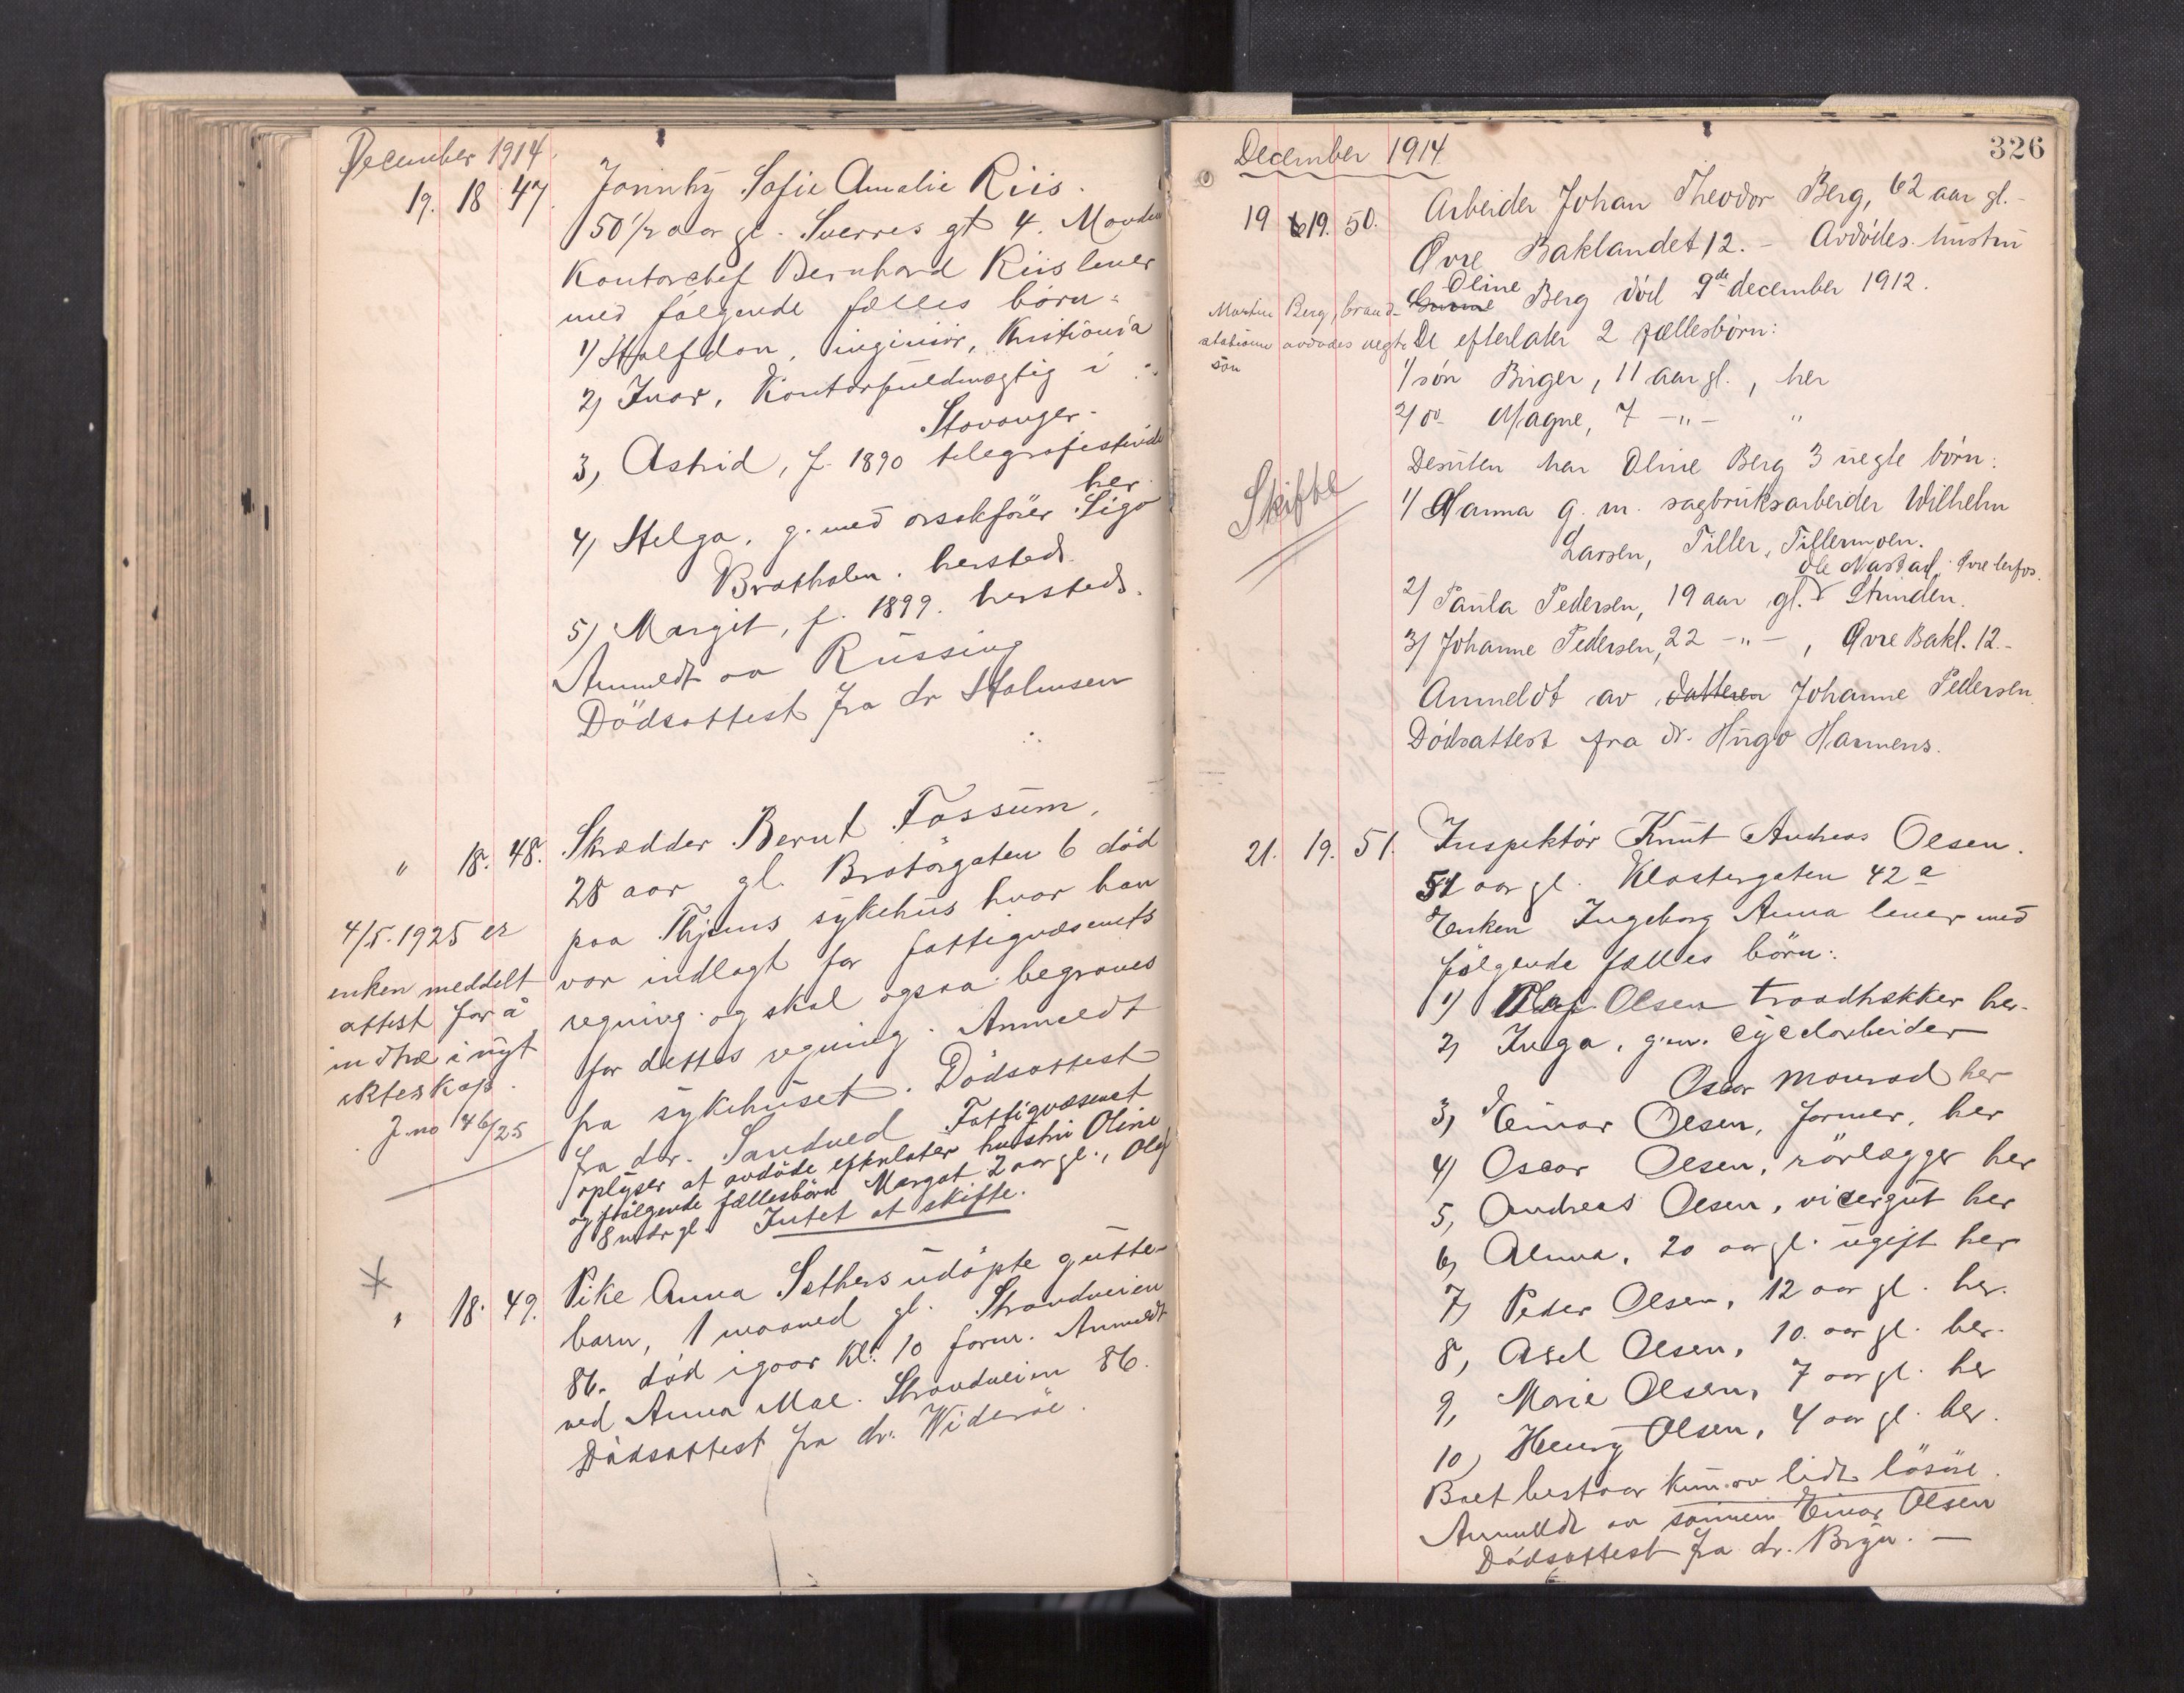 December 1914
19. 18 47. Jonnhy Sofie Amalie Riis.
50 1/2 aar gl. Sverres gt 4. Manden
Kontorchef Bernhard Riis lever
med følgende fælles børn:
1) Halfdan, ingeniør, Kristiania
2) Ivar, Kontorfuldmægtig i
Stavanger.
3, Astrid, f. 1890 telegrafistinde
her.
4, Helga, g. med orsakfører Sigv
Bratholm. hersteds.
5) Margit, f. 1899. hersteds.
Anmeldt av Rüssing
Dödsattest fra dr Holmsen
" 18. 48. Skrædder Bernt Fossum,
28 aar gl. Bratörgaten 6 død
paa Thjems sykehus hvor han
var indlagt for fattigvæsenets
regning og skal ogsaa begraves
for dettes regning. Anmeldt
fra sykehuset. Dödsattest
fra dr. Sandved Fattigvæsenet
oplyser at avdöde efterlater hustru Oline
og følgende fællesbörn Margot 2 aar gl., Olaf
8 mdr gl. Intet at skifte.
4/5. 1925 er
enken meddelt
attest for å
indtræ i nyt
ekteskap.
J. no 46/25
" 18. 49. Pike Anna Sæthers udöpte gutte-
barn, 1 maaned gl. Strandveien
86. död igaar kl. 10 form. Anmeldt
ved Anna Moe. Strandveien 86.
Dödsattest fra dr. Wideröe.
December 1914
326
19 19. 50. Arbeider Johan Theodor Berg, 62 aar gl.-
Øvre Baklandet 12. - Avdödes hustru
Oline
Berg död 9de december 1912.
De efterlater 2 fællesbørn:
Martin Berg, brand-
stationen avdødes uegte
søn
1/ søn Birger, 11 aar gl., her
2/ do Magne, 7 -"- "
Desuten har Oline Berg 3 uegte børn:
Skifte
1/ Hanna g. m. sagbruksarbeider Wilhelm
Larsen, Tiller, Tillermoen.
Ole Nastad, Øvre Lerfos.
2/ Paula Pedersen, 19 aar gl. Strinden.
3/ Johanne Pedersen, 22 -"-, Øvre Bakl. 12.-
Anmeldt av datteren Johanne Pedersen.
Dödsattest fra dr. Hugo Hannens.
21. 19. 51. Inspektör Knut Andreas Olsen.
51 aar gl. Klostergaten 42 a
Enken Ingeborg Anna lever med
følgende fælles börn:
1) Olaf Olsen traadhekker her.
2) Inga, g. m. cyclarbeider
Oscar Monrad her
3, Einar Olsen, former, her
4) Oscar Olsen, rörlægger her
5, Andreas Olsen, visergut her
6, Alma, 20 aar gl. ugift her
7, Peder Olsen, 12 aar gl. her.
8, Axel Olsen, 10 aar gl. her.
9, Marie Olsen, 7 aar gl. her
10, Henry Olsen, 4 aar gl. her.
Boet bestaar kun av lidt lösöre.
Anmeldt av sönnen Einar Olsen
Dödsattest fra dr. Bryn. -